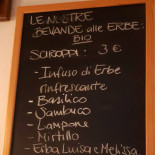 LE NOSTRE
BEVANDE alle ERBE:
BIO
SCIROPPI: 3 €
- Infuso di Erbe
rinfrescante
- Basilico
- Sambuco
- Lampone
- Mirtillo
- Erba Luisa e Melissa